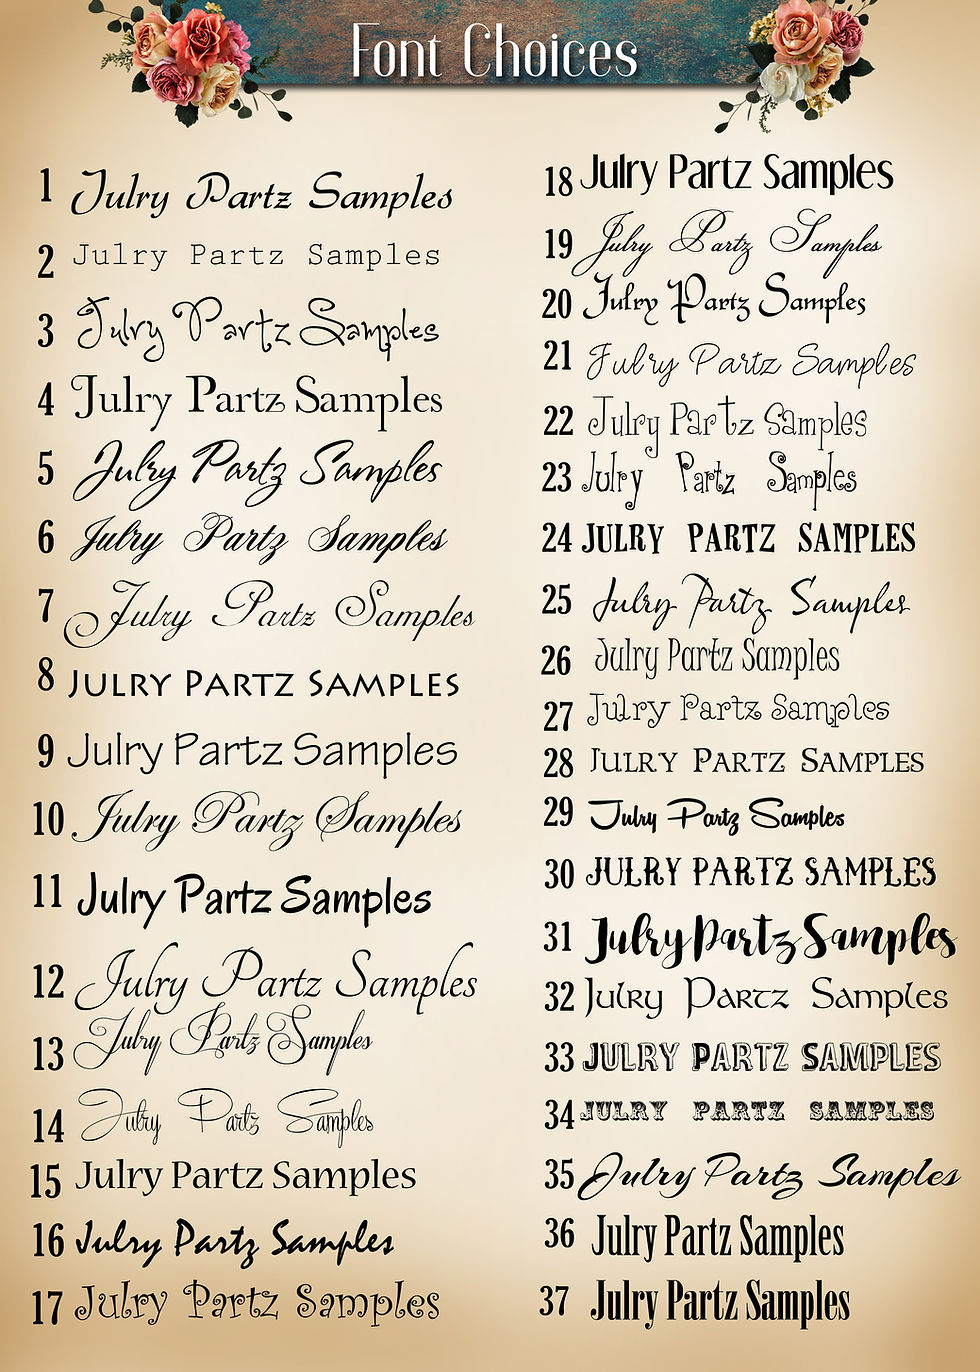 Font Choices
1 Julry Partz Samples
2 Julry Partz Samples
3 Julry Partz Samples
4 Julry Partz Samples
5 Julry Partz Samples
6 Julry Partz Samples
7 Julry Partz Samples
8 JULRY PARTZ SAMPLES
9 Julry Partz Samples
10 Julry Partz Samples
11 Julry Partz Samples
12 Julry Partz Samples
13 Julry Partz Samples
14 Julry Partz Samples
15 Julry Partz Samples
16 Julry Partz Samples
17 Julry Partz Samples
18 Julry Partz Samples
19 Julry Partz Samples
20 Julry Partz Samples
21 Julry Partz Samples
22 Julry Partz Samples
23 Julry Partz Samples
24 JULRY PARTZ SAMPLES
25 Julry Partz Samples
26 Julry Partz Samples
27 Julry Partz Samples
28 JULRY PARTZ SAMPLES
29 Julry Partz Samples
30 JULRY PARTZ SAMPLES
31 Julry Partz Samples
32 Julry Partz Samples
33 JULRY PARTZ SAMPLES
34 JULRY PARTZ SAMPLES
35 Julry Partz Samples
36 Julry Partz Samples
37 Julry Partz Samples